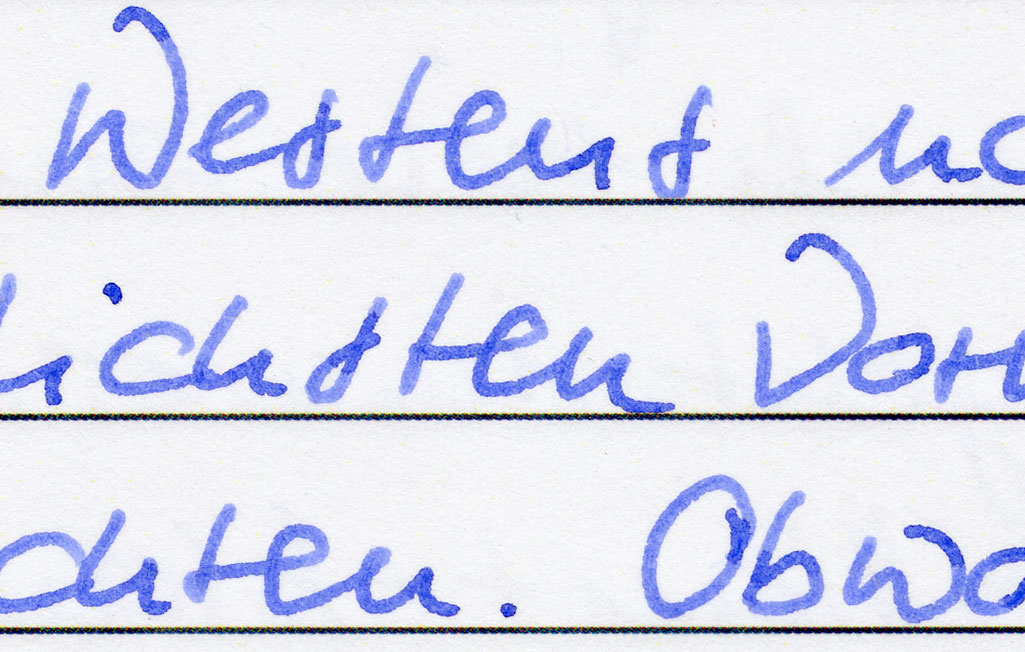 Westens no
lichsten Vor
chten. Obwo